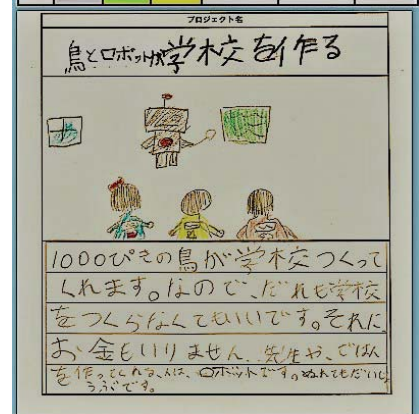 プロジェクト名
鳥とロボットが学校を作る
1000ぴきの鳥が学校つくって
くれます。なので、だれも学校
をつくらなくてもいいです。それに、
お金もいりません。先生や、ごはん
を作ってくれる人は、ロボットです。ぬれてもだいじょ
うぶです。